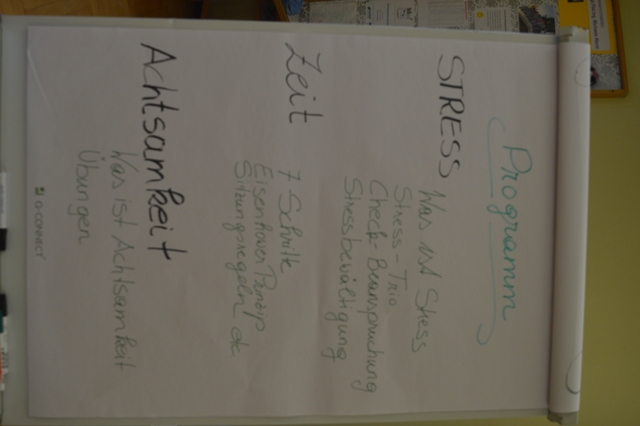 Programm
STRESS
Was ist Stress
Stress - Trio
Check-Beanspruchung
Stressbewältigung
Zeit
7-Schritte
Eisenhower Prinzip
Sitzungsregeln etc
Achtsamkeit
Was ist Achtsamkeit
Übungen
Q-CONNECT